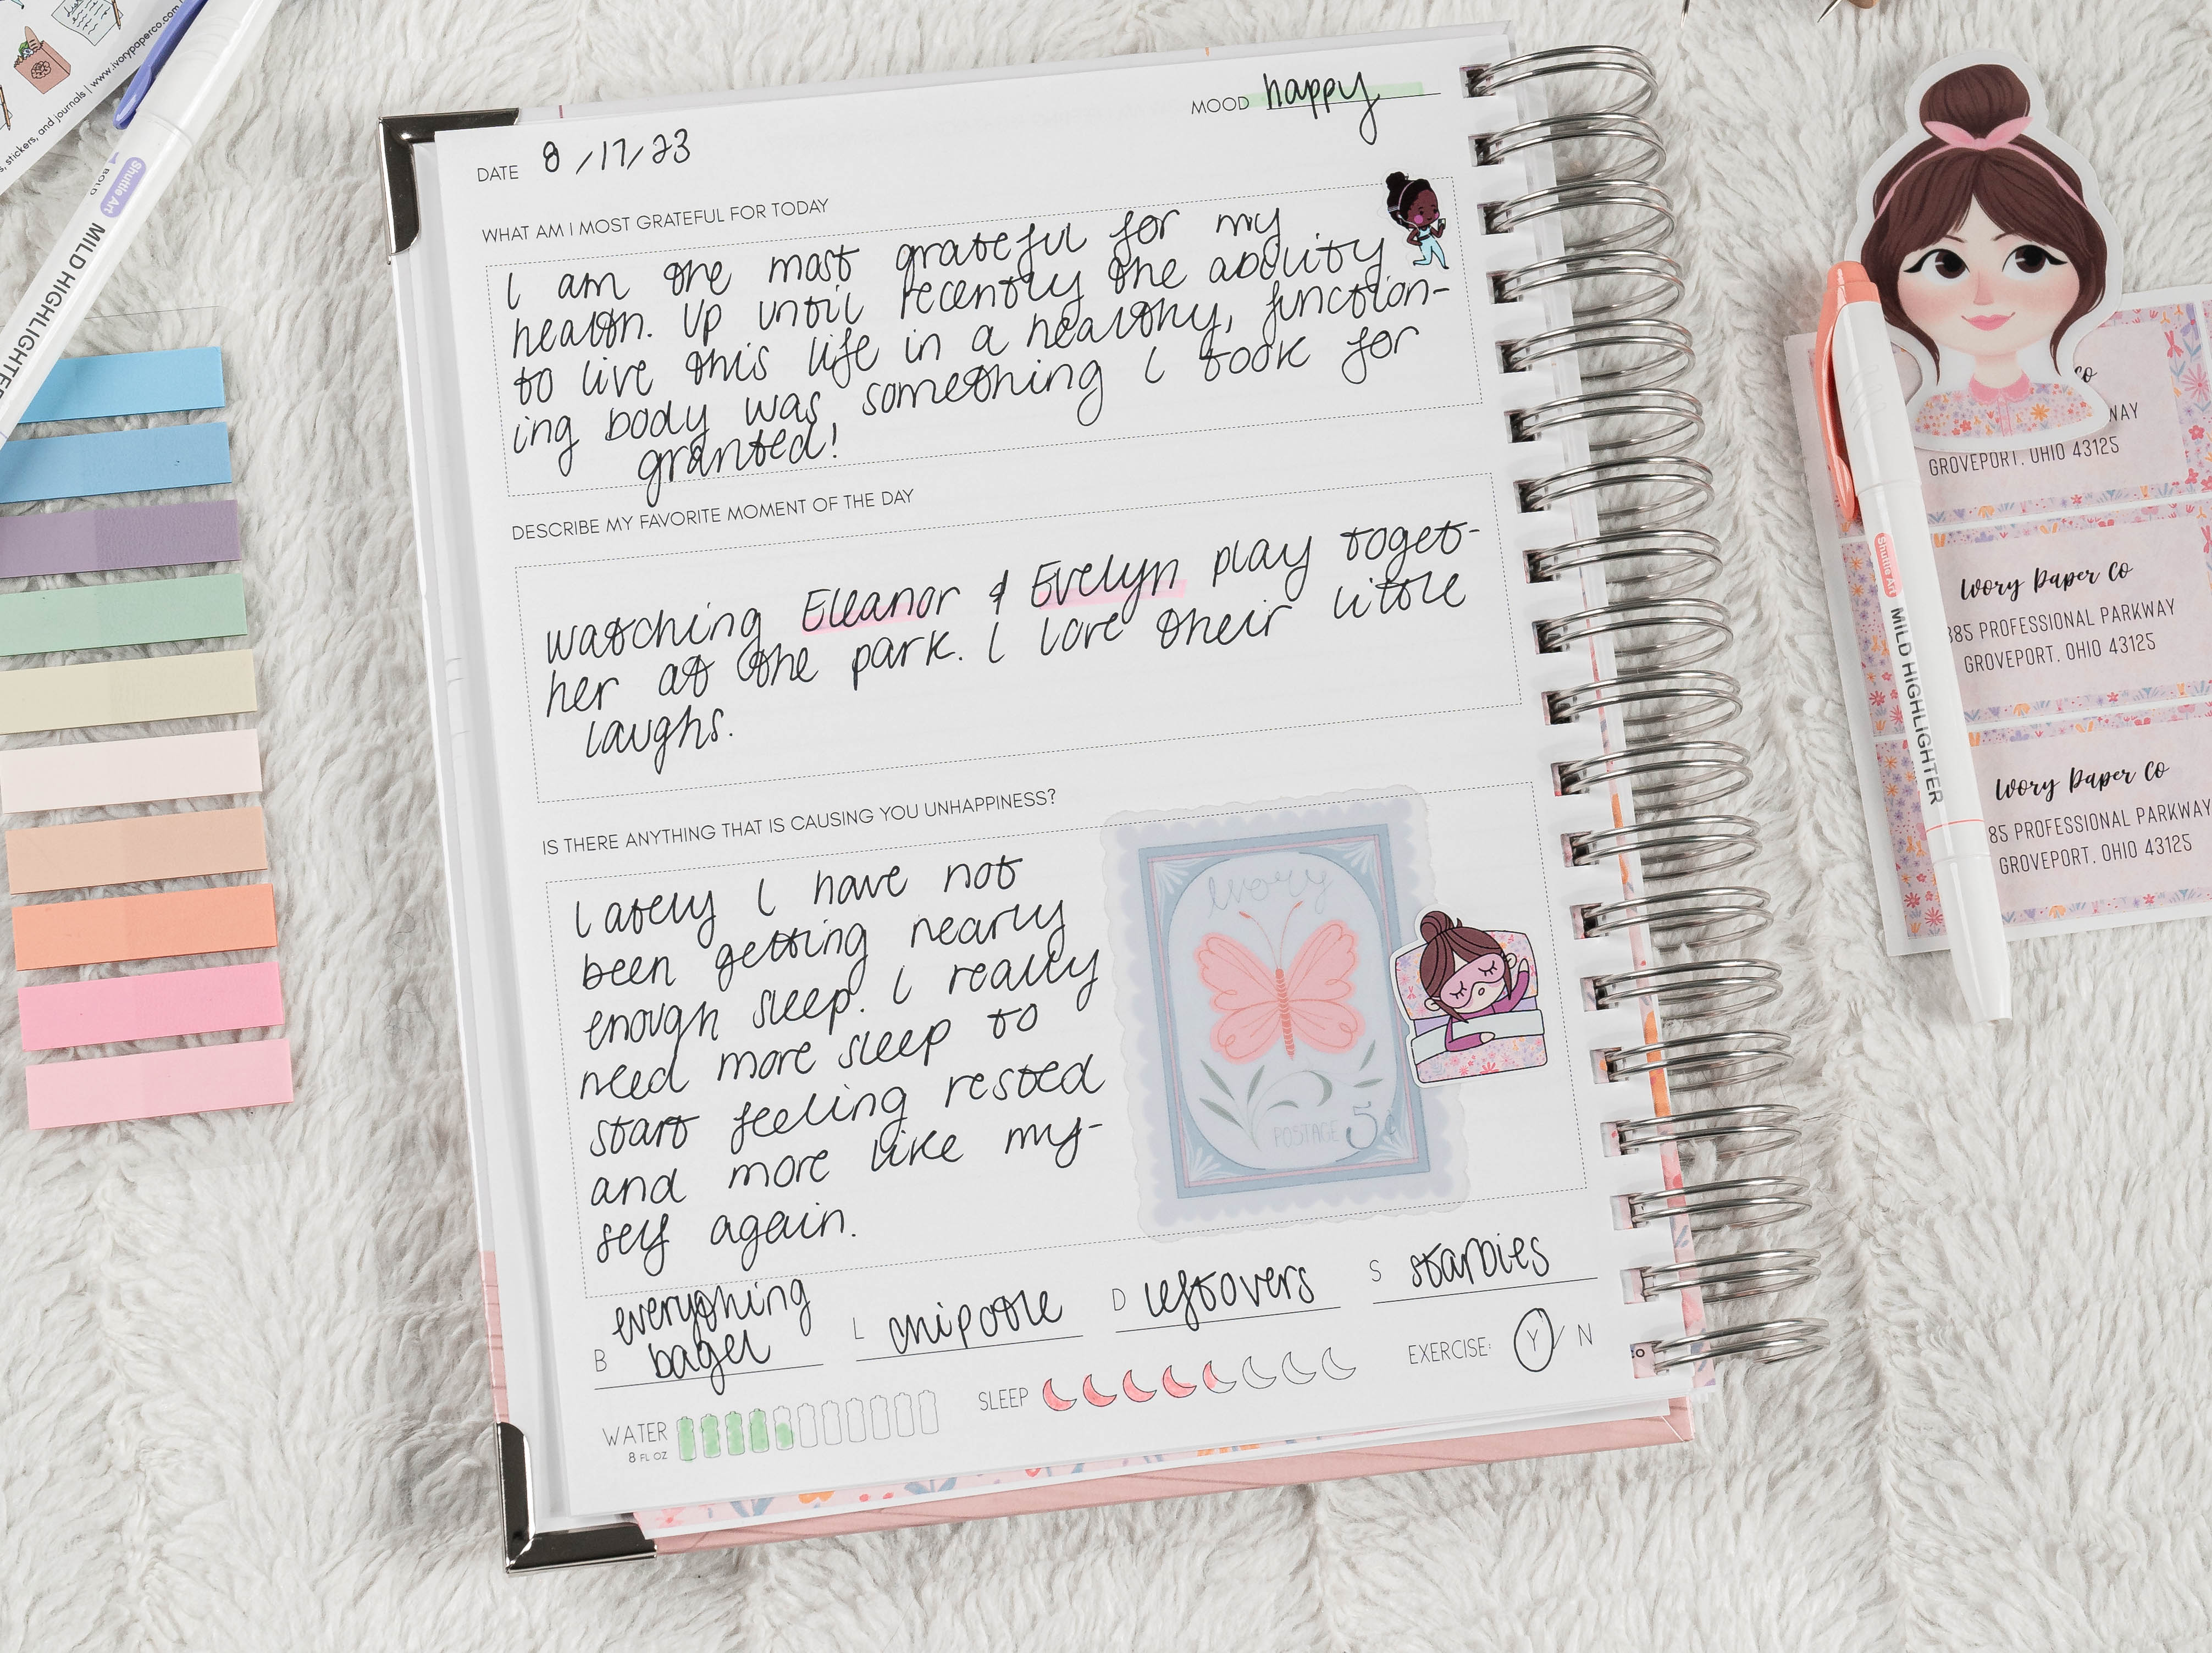 s, stickers, and journals | www.ivorypaperco.com
BOLD
Shuttle Art
MILD HIGHLIGHTE
MOOD happy
DATE 8/17/23
WHAT AM I MOST GRATEFUL FOR TODAY
I am the most grateful for my
health. Up until recently the ability
to live this life in a healthy, function-
ing body was something I took for
granted!
DESCRIBE MY FAVORITE MOMENT OF THE DAY
watching Eleanor & Evelyn play toget-
her at the park. I love their little
laughs.
IS THERE ANYTHING THAT IS CAUSING YOU UNHAPPINESS?
Lately I have not
been getting nearly
enough sleep. I really
need more sleep to
start feeling rested
and more like my-
self again.
Ivory
POSTAGE 5¢
B everything
bagel
L chipotle
D leftovers
S starbies
WATER
8 FL OZ
SLEEP
EXERCISE: Y / N
co
co
WAY
GROVEPORT, OHIO 43125
Ivory Paper Co
85 PROFESSIONAL PARKWAY
GROVEPORT, OHIO 43125
Ivory Paper Co
85 PROFESSIONAL PARKWAY
GROVEPORT, OHIO 43125
Shuttle Art
MILD HIGHLIGHTER